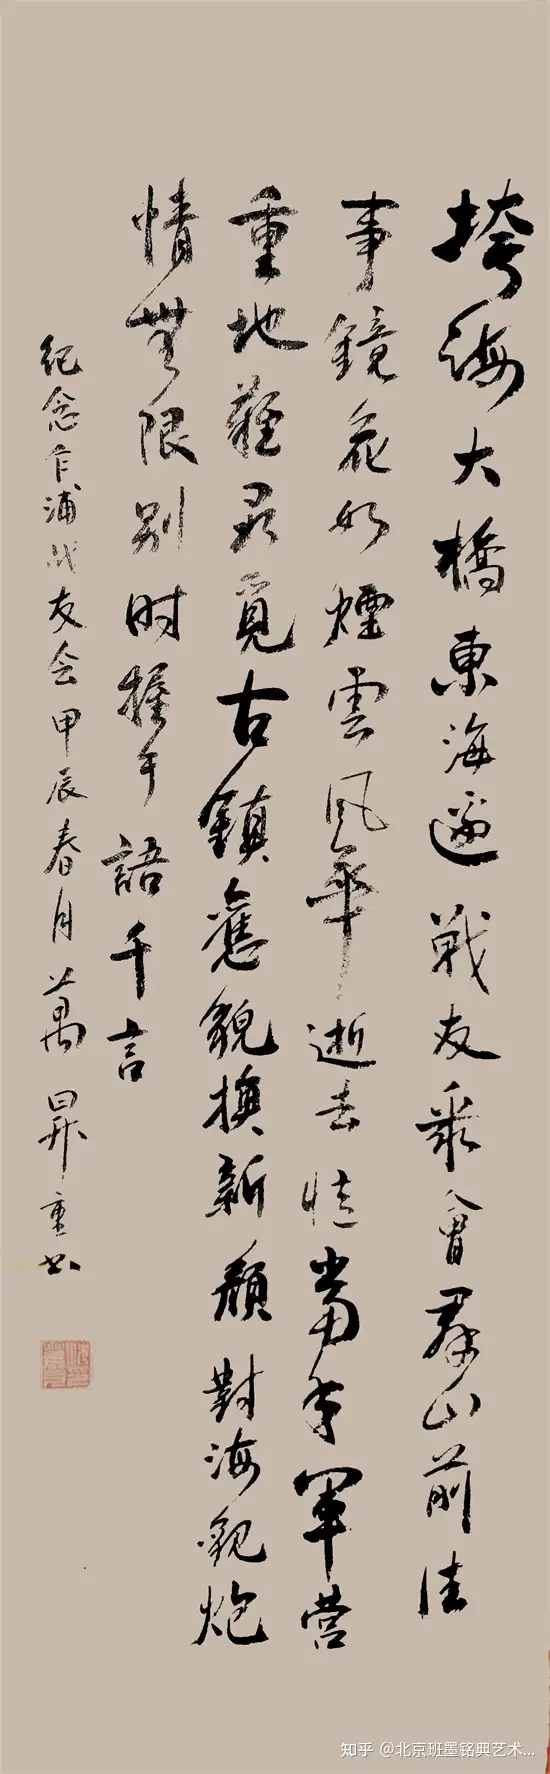 挎海大橋東海邊戰友聚會群山前佳
事鏡花如煙雲風華逝去憶當年軍营
重地難尋覓古鎮舊貌換新顏對海觀炮
情無限别时握手語千言
紀念乍浦战友会甲辰春月萬昇重书
知乎 @北京班墨铭典艺术...